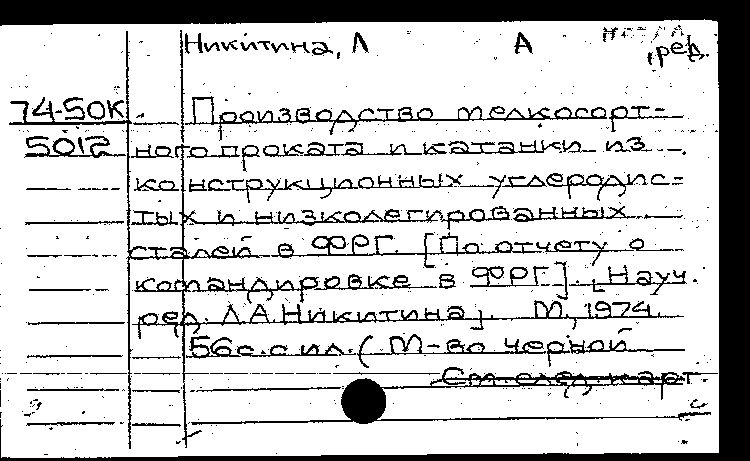 Никитина, Л А
, ред.
74-50К
5012
Производство мелкосорт-
ного проката и катанки из
конструкционных углеродис-
тых и низколегированных
сталей в ФРГ. [По отчету о
командировке в ФРГ]. [Науч.
ред. Л.А. Никитина]. М., 1974.
56с. с ил. (М-во черной
См след. карт.